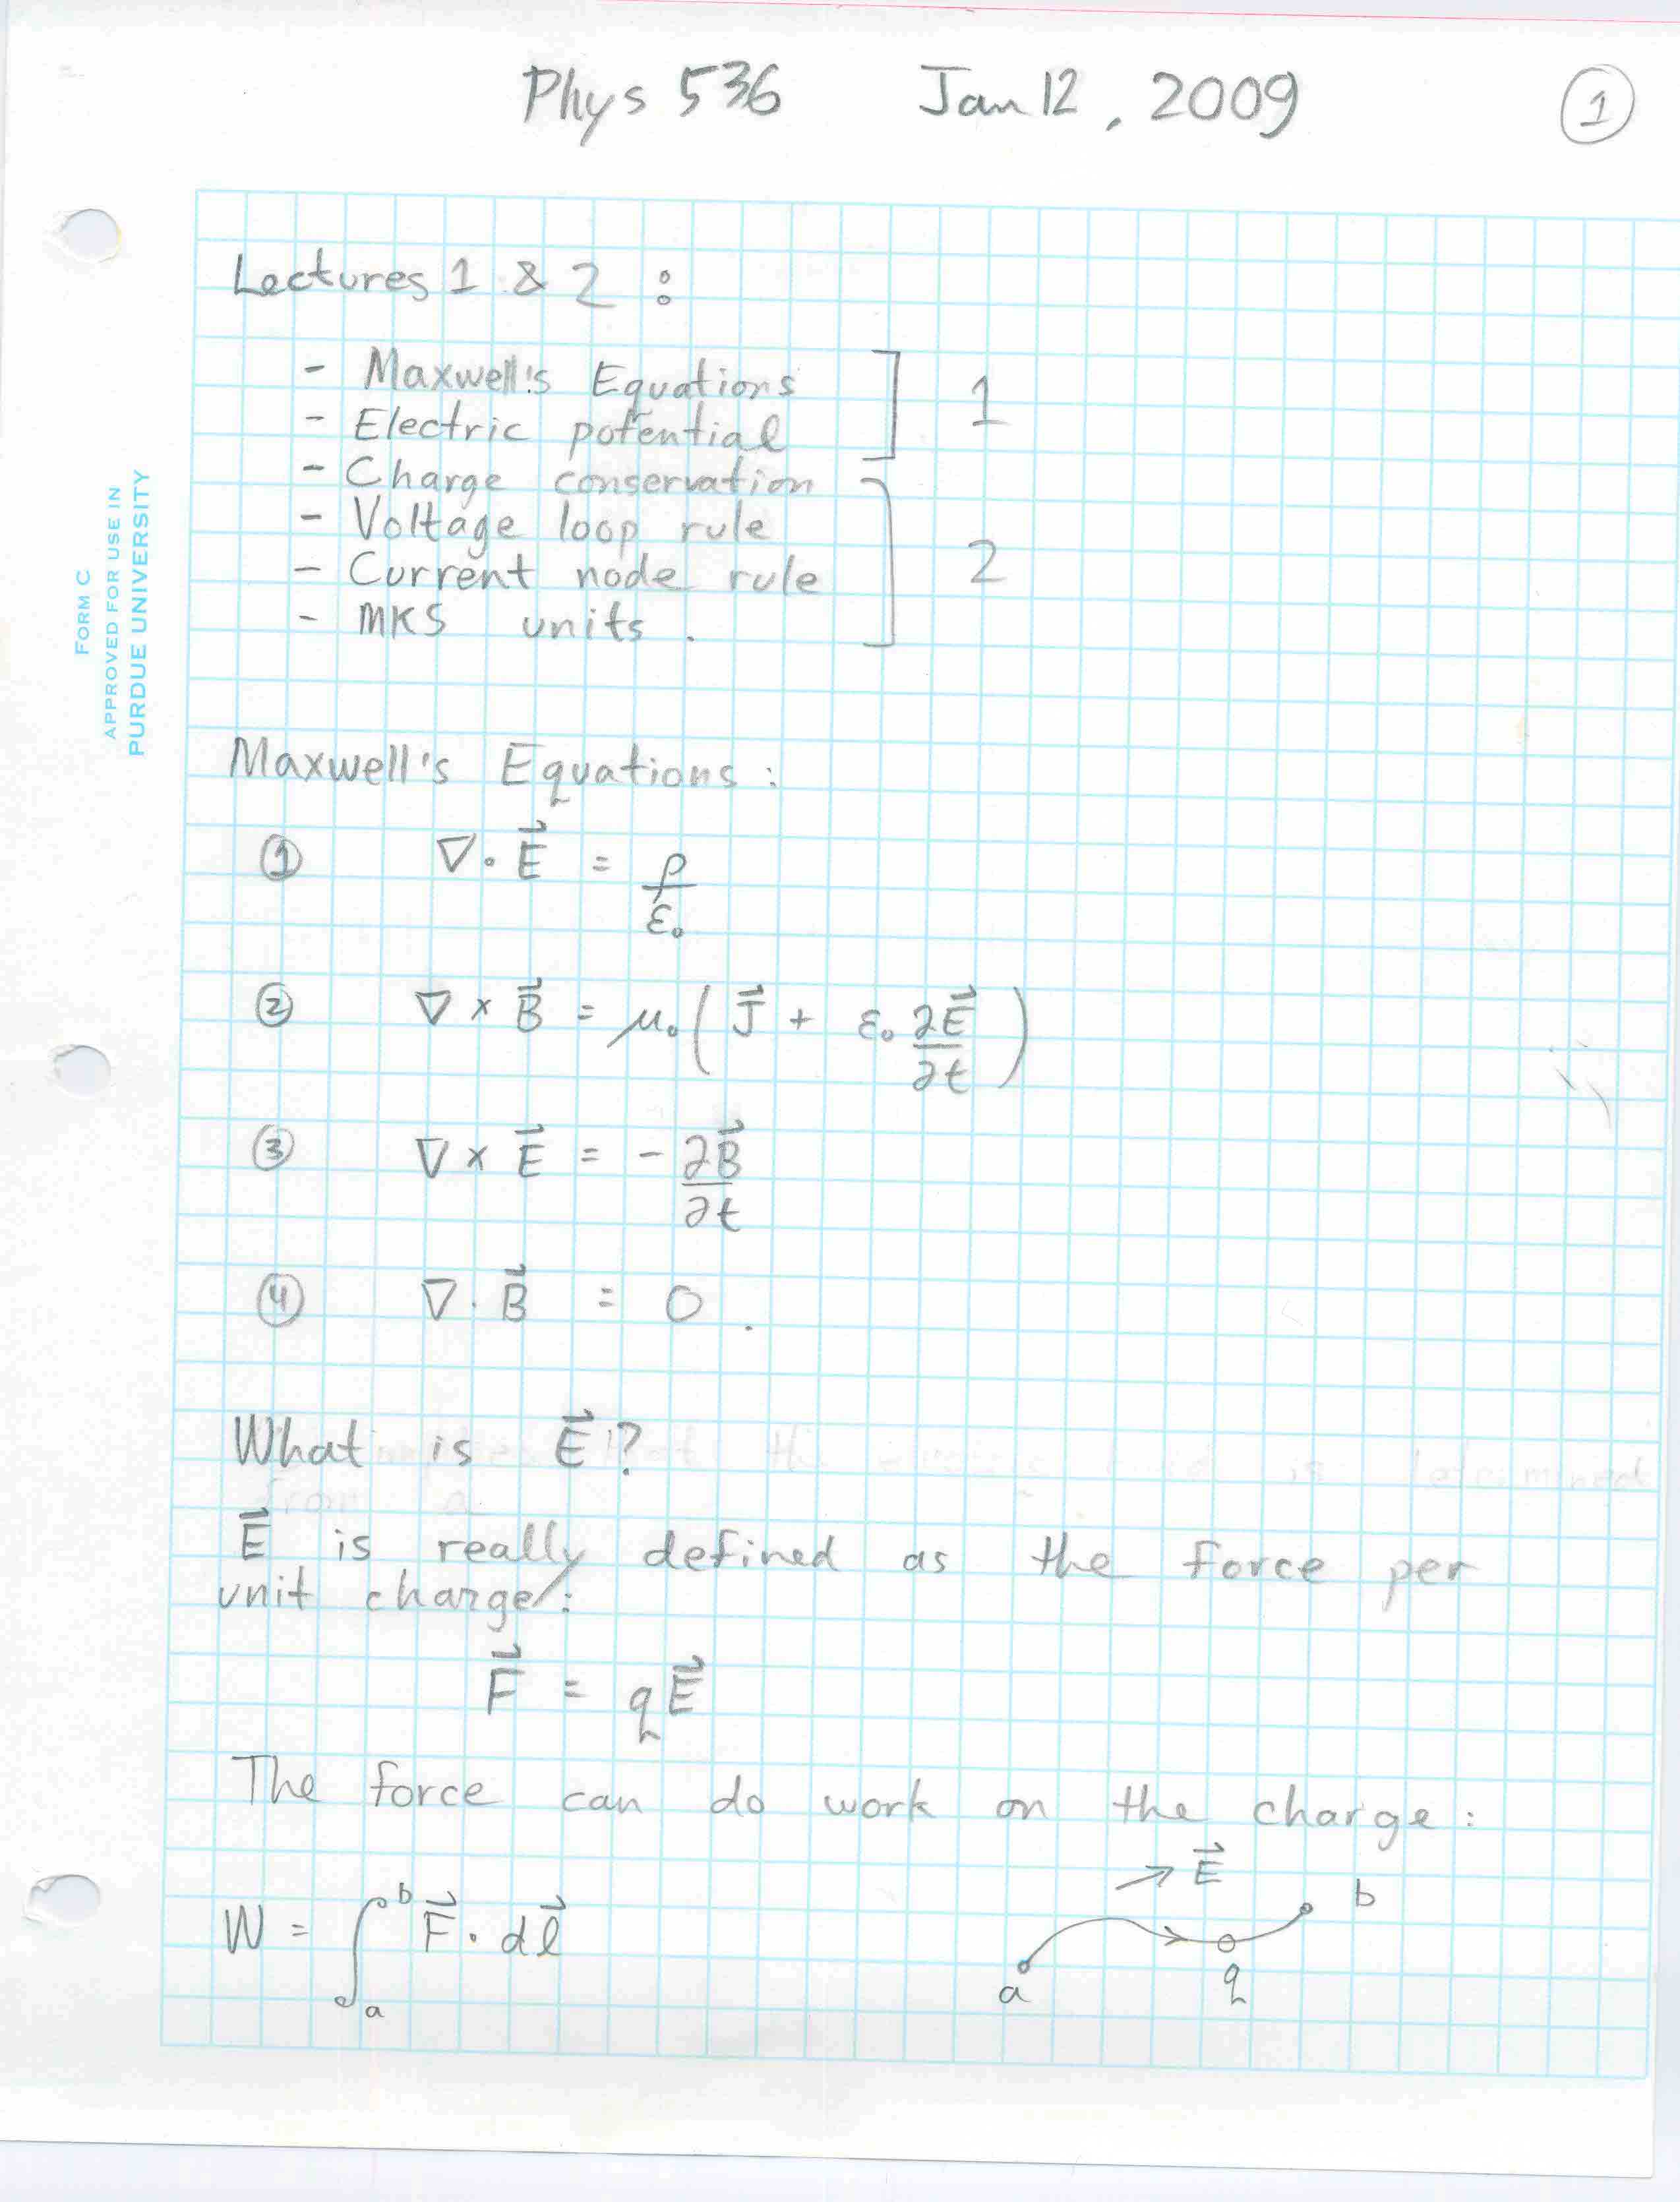 Phys 536 Jan 12, 2009 1
Lectures 1 & 2 :
- Maxwell's Equations
- Electric potential
1
- Charge conservation
- Voltage loop rule
- Current node rule
- MKS units.
2
FORM C
APPROVED FOR USE IN
PURDUE UNIVERSITY
Maxwell's Equations:
① ∇·E⃗ = ρ/ε₀
② ∇×B⃗ = μ₀(J⃗ + ε₀ ∂E⃗/∂t)
③ ∇×E⃗ = -∂B⃗/∂t
④ ∇·B⃗ = 0.
What is E⃗?
E⃗ is really defined as the force per
unit charge:
F⃗ = qE⃗
The force can do work on the charge:
W = ∫ₐᵇ F⃗·dl⃗
E⃗
a
q
b